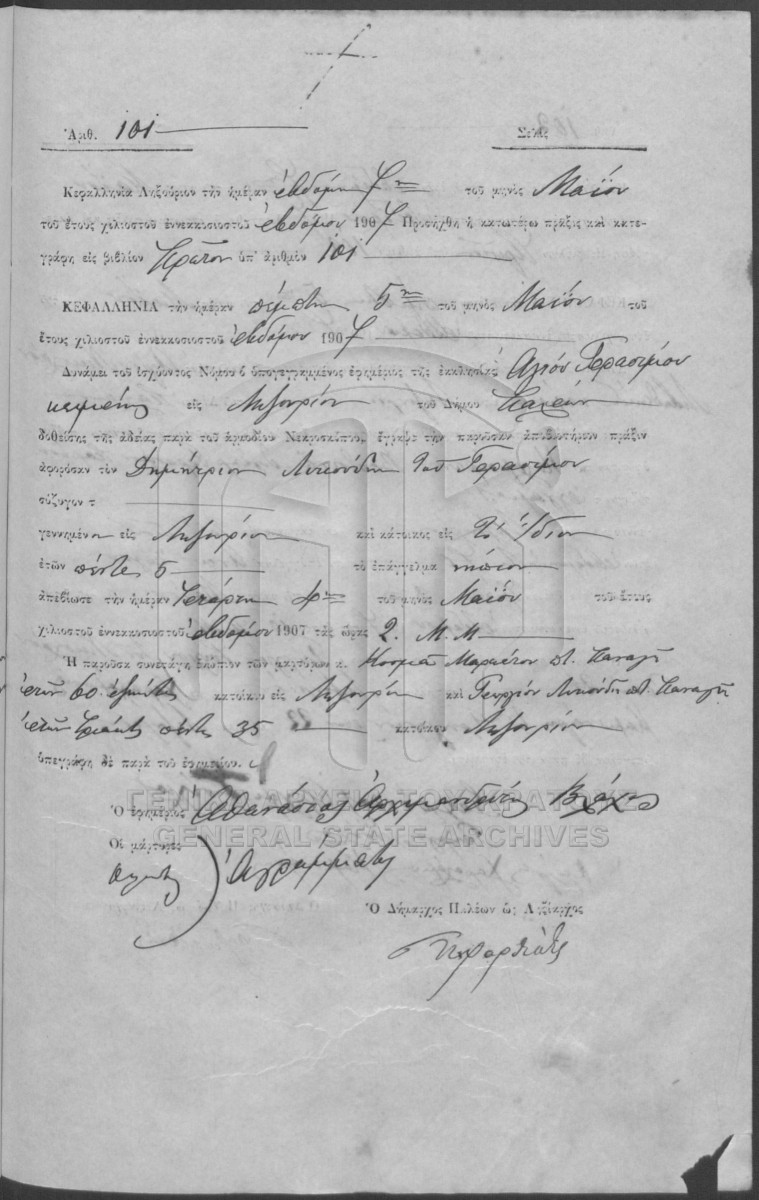 Ἀριθ. 101
Σελὶς
Κεφαλληνία Ληξούριον τὴν ἡμέραν ἑβδόμη 7η τοῦ μηνὸς Μαΐου
τοῦ ἔτους χιλιοστοῦ ἐννεακοσιοστοῦ ἑβδόμου 1907 Προσήχθη ἡ κατωτέρω πρᾶξις καὶ κατε-
γράφη εἰς βιβλίον Πρῶτον ὑπ' ἀριθμὸν 101
ΚΕΦΑΛΛΗΝΙΑ τὴν ἡμέραν πέμπτη 5η τοῦ μηνὸς Μαΐου τοῦ
ἔτους χιλιοστοῦ ἐννεακοσιοστοῦ ἑβδόμου 1907
Δυνάμει τοῦ ἰσχύοντος Νόμου ὁ ὑπογεγραμμένος ἐφημέριος τῆς ἐκκλησίας Ἁγίου Γερασίμου
εἰς Ληξουρίου τοῦ Δήμου Παλέων
δοθείσης τῆς ἀδείας παρὰ τοῦ ἁρμοδίου Νεκροσκόπου, ἔγραψε τὴν παροῦσαν ἀποβιωτήριον πρᾶξιν
ἀφορῶσαν τὸν Δημήτριον Λυκούδη τοῦ Γερασίμου
σύζυγον τ
γεννημένον εἰς Ληξούριον καὶ κάτοικος εἰς τὸ Ἴδιον
ἐτῶν πέντε 5 τὸ ἐπάγγελμα νήπιον
ἀπεβίωσε τὴν ἡμέραν τετάρτη 4η τοῦ μηνὸς Μαΐου τοῦ ἔτους
χιλιοστοῦ ἐννεακοσιοστοῦ ἑβδόμου 1907 τὰς ὥρας 2. Μ. Μ
Ἡ παροῦσα συνετάγη ἐνώπιον τῶν μαρτύρων κ. Κοσμᾶ Μαρκέτου π. Παναγῆ
ἐτῶν 60 ἑξῆντα κατοίκου εἰς Ληξουρίου καὶ Γεωργίου Λυκούδη π. Παναγῆ
ἐτῶν τριάντα πέντε 35 κατοίκου Ληξουρίου
ὑπεγράφη δὲ παρὰ τοῦ ἐφημερίου.
Ὁ ἐφημέριος Ἀθανάσιος Ἀρχιμανδρίτης
Οἱ μάρτυρες
Ἀγράμματοι
Ὁ Δήμαρχος Παλέων ὡς Ληξίαρχος
ΓΕΝΙΚΑ ΑΡΧΕΙΑ ΤΟΥ ΚΡΑΤΟΥΣ
GENERAL STATE ARCHIVES